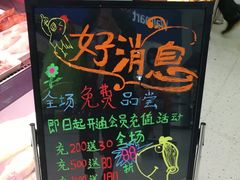 好消息
全场免费品尝
即日起开通会员充值活动
充200送30 全场
充500送80 88折